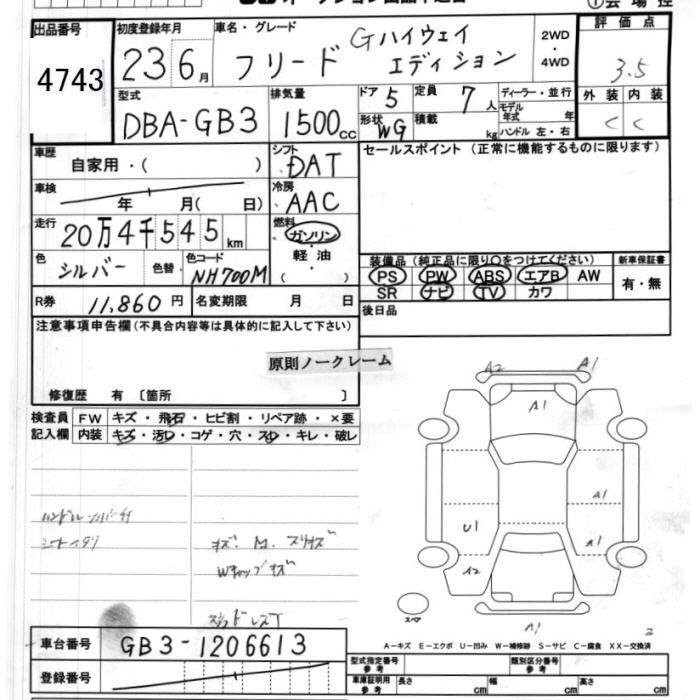 出品番号
4743
初度登録年月
23 6月
車名・グレード
フリード Gハイウェイ
エディション
2WD
・
4WD
評価点
3.5
外装 内装
C C
型式
DBA-GB3
排気量
1500cc
ドア 5
形状 WG
定員 7人
積載 kg
ディーラー・並行
モデル
年式 年
ハンドル 左・右
車歴
自家用・( )
シフト
DAT
セールスポイント (正常に機能するものに限ります)
車検
年 月( 日)
冷房
AAC
走行
20万4千545km
燃料
ガソリン
軽油
( )
色
シルバー
色替
色コード
NH700M
装備品 (純正品に限り〇をつけてください)
PS PW ABS エアB AW
SR ナビ TV カワ
新車保証書
有・無
R券 11,860円
名変期限 月 日
後日品
注意事項申告欄(不具合内容等は具体的に記入して下さい)
原則ノークレーム
修復歴 有 〔箇所 〕
検査員
記入欄
FW キズ・飛石・ヒビ割・リペア跡・×要
内装 キズ・汚レ・コゲ・穴・スレ・キレ・破レ
A2 A1
A1
A1
U1 A1
A2
スペア
A1
2
A-キズ E-エクボ U-凹み W-補修跡 S-サビ C-腐食 XX-交換済
車台番号
GB3-1206613
登録番号
型式指定番号
参考
類別区分番号
参考
車庫証明用
参考
長さ cm 幅 cm 高さ cm